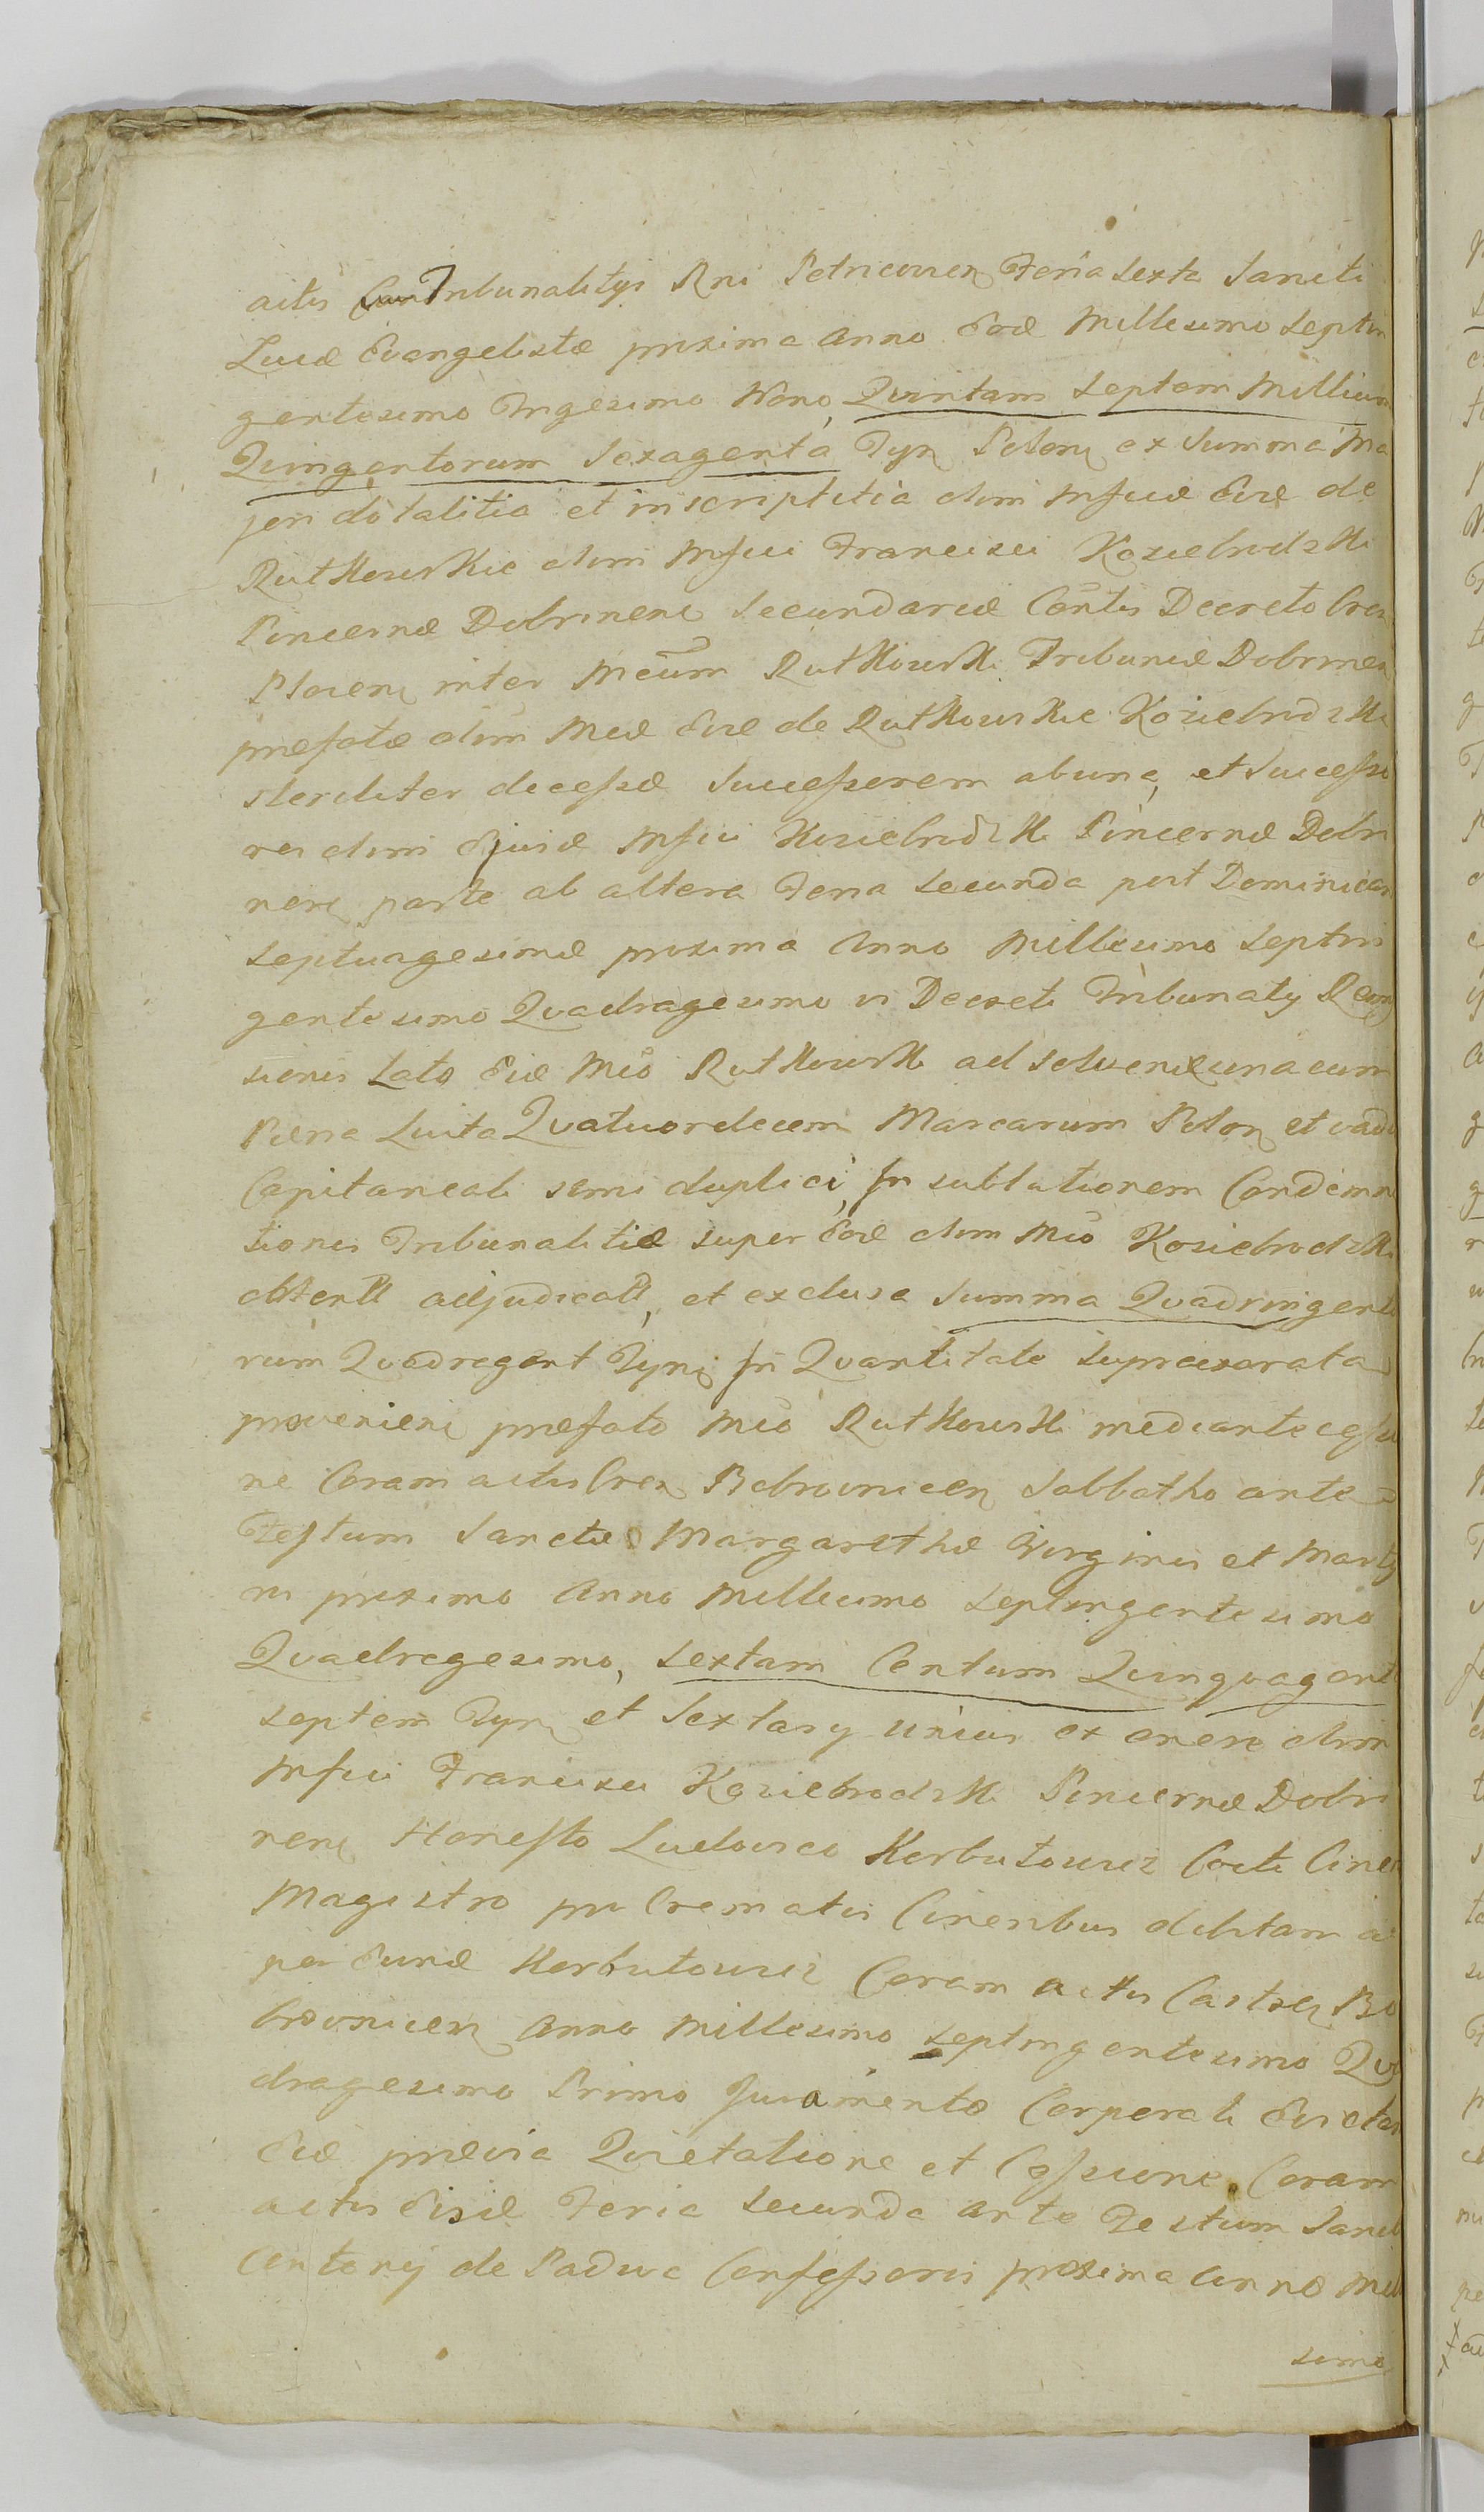 actis Tribunalitys Rni Petricouien Feria Sexta Sancti
Lucæ Evangelistæ proxima Anno Eodē Millesimo Septin
gentesimo Trigesimo Nono, Quintam Septem Millium
Quingentorum Sexagenta Tyn Polon ex Summa Ma
jori dotalitia et inscriptitia olim Mfcæ Evæ de
Rutkowskie olim Mfici Francisci Koziebrodzki
Pincernæ Dobrinen Secundariæ Contis Decreto Cren
Plocen inter Mcum Rutkowski Tribunū Dobrinen
præfatæ olim Mcæ Evæ de Rutkowskie Koziebrodzki
steriliter decessæ Successorem ab una, et Successo
res olim Ejusd Mfici Koziebrodzki Pincernæ Dobri
nen parte ab altera Feria Secunda post Dominicam
Septuagesimæ proxima Anno Millesimo Septin
gentesimo Quadragesimo vi Decreti Tribunalis Remis
sionis Lato Eid Mco Rutkowski ad solvend una cum
Pæna Luita Quatuordecem Marcarum Polon et vadio
Capitaneali semi duplici, In sublationem Condemna
tionis Tribunalitiæ super Eod olim Mco Koziebrodzki
obtent adjudicat, et exclusa Summa Quadringento
rum Quadragent Tyn In Quantitate supraexarata
provenien præfato Mco Rutkowski mediante cessio
ne Coram actis Cren Bobrovnicen Sabbatho ante
Festum Sanctæ Margarethæ Virginis et Marty
ris proximo Anno Millesimo Septingentesimo
Quadragesimo, Sextam Centum Quinquagent
septem Tyn et Sextary unius ex onere olim
Mfici Francisci Koziebrodzki Pincernæ Dobri
nen Honesto Ludovico Korbutowicz Cocti Ciner
Magistro pro Crematis Cineribus debitam ac
per Eund Korbutowicz Coram actis Castren Bo
brovnicen Anno Millesimo Septingentesimo Qua
dragesimo Primo Juramento Corporali Evictam
Eid prævia Quietatione et Cessione Coram
actis Eisd Feria Secunda ante Festum Sancti
Antony de Padua Confessoris proxima Anno Mil
simo